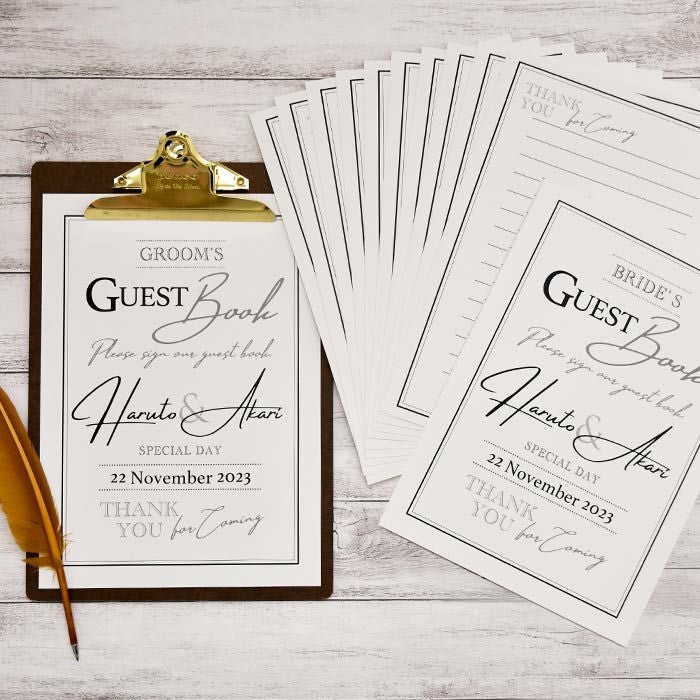 penco
GROOM'S
GUEST Book
Please sign our guest book.
Haruto & Akari
SPECIAL DAY
22 November 2023
THANK
YOU for Coming
THANK
YOU for Coming
BRIDE'S
GUEST Book
Please sign our guest book.
Haruto & Akari
SPECIAL DAY
22 November 2023
THANK
YOU for Coming